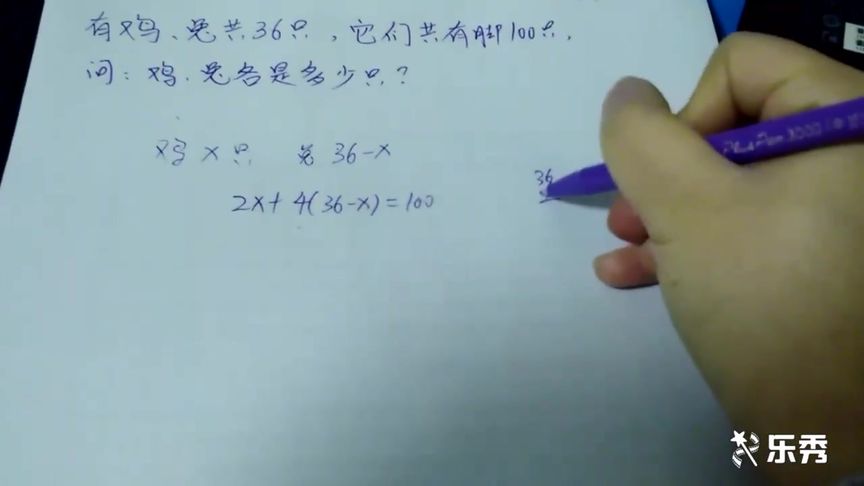 有鸡、兔共36只,它们共有脚100只,
问:鸡、兔各是多少只?
鸡 x 只 兔 36-x
2x+4(36-x)=100
36
乐秀